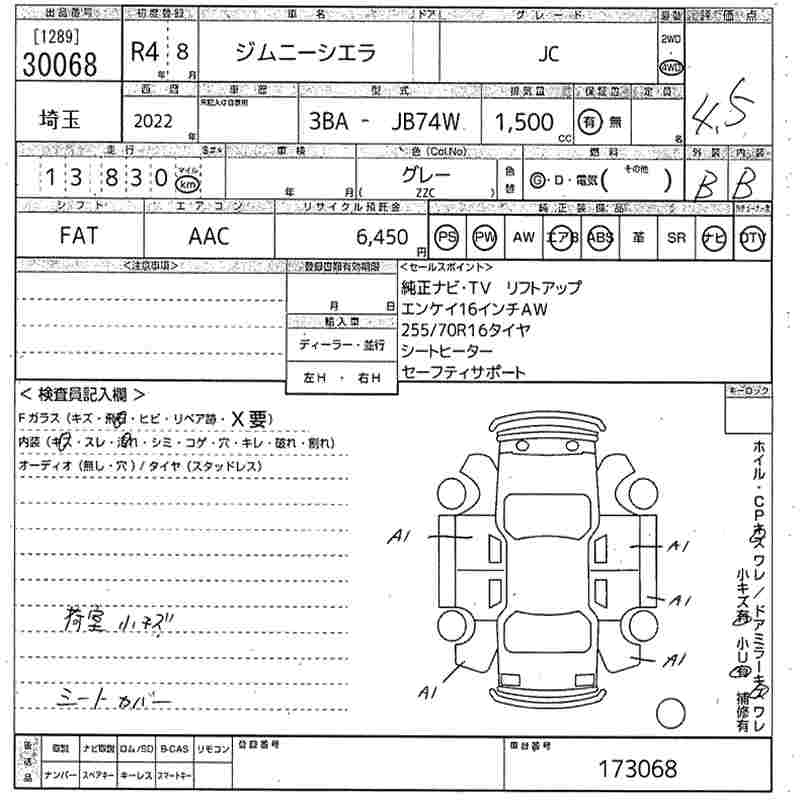 出品番号 初度登録 車名 ドア グレード 駆動 評価点
[1289]
30068 R4 8 ジムニーシエラ JC 2WD
年 月 ・
4WD
埼玉 西暦 車歴 型式 排気量 保証書 定員
未記入は自家用
2022 3BA - JB74W 1,500 有 無 4.5
年 CC 名
走行 車検 色(Col.No) 燃料 外装 内装
13,830 マイル km 年 月 グレー 色替 G・D・電気( その他 ) B B
( ZZC )
シフト エアコン リサイクル預託金 純正装備品
FAT AAC 6,450 円 PS PW AW エアB ABS 革 SR ナビ DTV
<注意事項> 登録書類有効期限 <セールスポイント>
純正ナビ・TV リフトアップ
月 日 エンケイ16インチAW
輸入車 255/70R16タイヤ
ディーラー・並行 シートヒーター
左H ・ 右H セーフティサポート
<検査員記入欄> キーロック
Fガラス(キズ・飛石・ヒビ・リペア跡・X要)
内装(キズ・スレ・汚れ・シミ・コゲ・穴・キレ・破れ・割れ)
オーディオ(無し・穴)/タイヤ(スタッドレス)
A1
A1
A1
A1
A1
荷室 小キズ
シートカバー
ホイル・CPキズワレ/ドアミラーキズワレ
小キズ有 小U有 補修有
後送品 取説 ナビ取説 ロム/SD B-CAS リモコン 登録番号 車台番号
ナンバー スペアキー キーレス スマートキー 173068